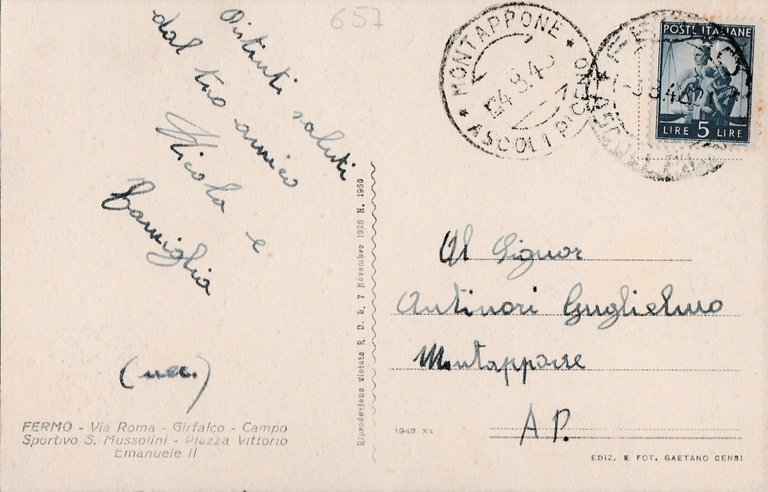 657
Distinti saluti
dal tuo amico
Nicola e
Famiglia
FERMO - Via Roma - Girfalco - Campo
Sportivo S. Mussolini - Piazza Vittorio
Emanuele II
Riproduzione vietata R. D. L. 7 Novembre 1925 N. 1950
MONTAPPONE
ASCOLI PICENO
POSTE ITALIANE
LIRE 5 LIRE
Al Signor
Antinori Guglielmo
Montappone
A.P.
1942 XX
EDIZ. E FOT. GAETANO CENSI